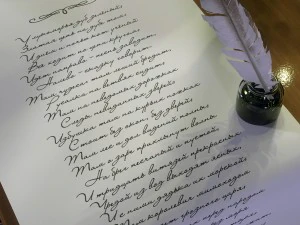 У лукоморья дуб зеленый;
Златая цепь на дубе том:
И днем и ночью кот ученый
Все ходит по цепи кругом;
Идет направо - песнь заводит,
Налево - сказку говорит.
Там чудеса: там леший бродит,
Русалка на ветвях сидит;
Там на неведомых дорожках
Следы невиданных зверей;
Избушка там на курьих ножках
Стоит без окон, без дверей;
Там лес и дол видений полны;
Там о заре прихлынут волны
На брег песчаный и пустой,
И тридцать витязей прекрасных
Чредой из вод выходят ясных,
И с ними дядька их морской;
Там королевич мимоходом
Пленяет грозного царя;